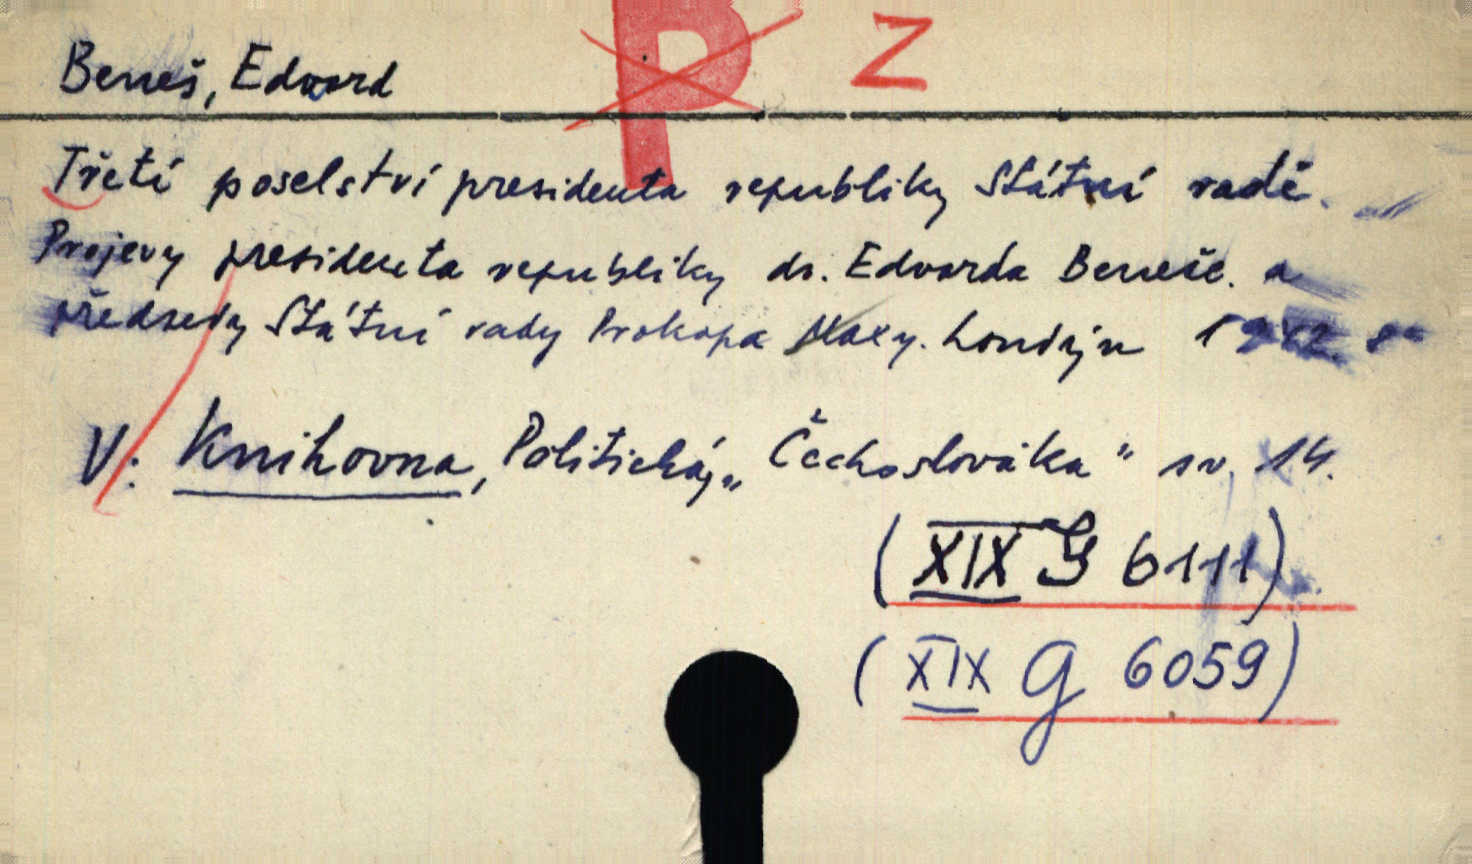 P Z
Beneš, Edvard
Třetí poselství presidenta republiky Státní radě.
Projevy presidenta republiky dr. Edvarda Beneše. a
předsedy Státní rady Prokopa Maxy. Londýn 1942. 8°
V: Knihovna, Politická, „Čechoslováka" sv. 14.
(XIX G 6111)
(XIX G 6059)